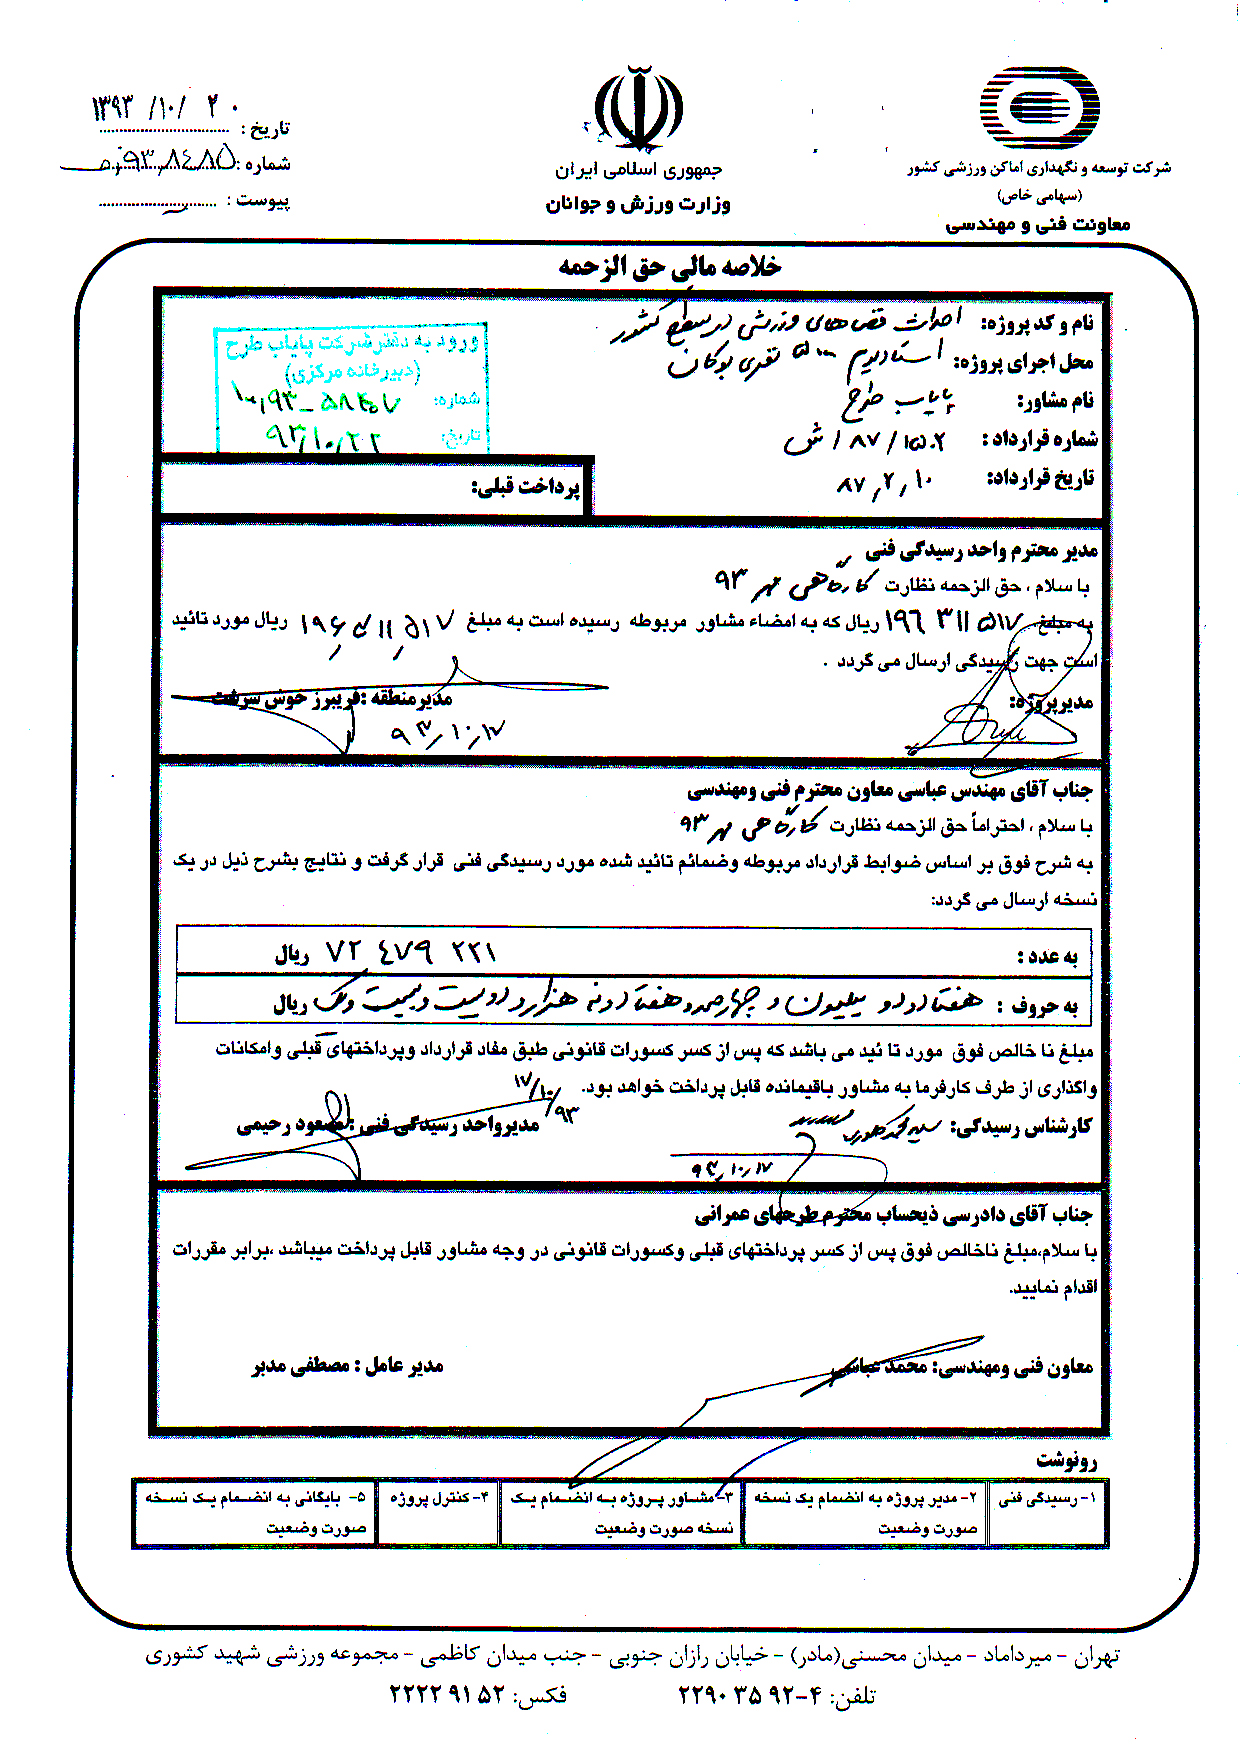 شرکت توسعه و نگهداری اماکن ورزشی کشور
(سهامی خاص)
معاونت فنی و مهندسی
جمهوری اسلامی ایران
وزارت ورزش و جوانان
تاریخ : ۱۳۹۳/۱۰/۲۰
شماره : ۹۳،۸۴۸۵
پیوست :
خلاصه مالی حق الزحمه
نام و کد پروژه: احداث فضاهای ورزشی در سطح کشور
محل اجرای پروژه: استادیوم ۵۰۰۰ نفری بوکان
نام مشاور: پایاب طرح
شماره قرارداد : ۸۷/۱۵۰۲/ش
تاریخ قرارداد: ۸۷,۲,۱۰
ورود به دفتر شرکت پایاب طرح
(دبیرخانه مرکزی)
شماره:
تاریخ: ۹۳,۱۰,۲۲
پرداخت قبلی:
مدیر محترم واحد رسیدگی فنی
با سلام ، حق الزحمه نظارت کارگاهی مهر ۹۳
به مبلغ ۱۹۶ ۳۱۱ ۵۱۷ ریال که به امضاء مشاور مربوطه رسیده است به مبلغ ریال مورد تائید
است جهت رسیدگی ارسال می گردد .
مدیرپروژه:
مدیرمنطقه :فریبرز خوش سرشت
۹۳,۱۰,۱۷
جناب آقای مهندس عباسی معاون محترم فنی ومهندسی
با سلام ، احتراماً حق الزحمه نظارت کارگاهی مهر ۹۳
به شرح فوق بر اساس ضوابط قرارداد مربوطه وضمائم تائید شده مورد رسیدگی فنی قرار گرفت و نتایج بشرح ذیل در یک
نسخه ارسال می گردد:
به عدد : ۷۲ ۴۷۹ ۲۲۱ ریال
به حروف : هفتاد و دو میلیون و چهارصد و هفتاد و نه هزار و دویست و بیست و یک ریال
مبلغ نا خالص فوق مورد تا ئید می باشد که پس از کسر کسورات قانونی طبق مفاد قرارداد وپرداختهای قبلی وامکانات
واگذاری از طرف کارفرما به مشاور باقیمانده قابل پرداخت خواهد بود.
کارشناس رسیدگی:
مدیرواحد رسیدگی فنی :مسعود رحیمی
۹۳/۱۰/۱۷
۹۳,۱۰,۱۷
جناب آقای دادرسی ذیحساب محترم طرحهای عمرانی
با سلام،مبلغ ناخالص فوق پس از کسر پرداختهای قبلی وکسورات قانونی در وجه مشاور قابل پرداخت میباشد ،برابر مقررات
اقدام نمایید.
معاون فنی ومهندسی: محمد عباسی
مدیر عامل : مصطفی مدبر
رونوشت
۱- رسیدگی فنی
۲- مدیر پروژه به انضمام یک نسخه
صورت وضعیت
۳- مشاور پروژه به انضمام یک
نسخه صورت وضعیت
۴- کنترل پروژه
۵- بایگانی به انضمام یک نسخه
صورت وضعیت
تهران - میرداماد - میدان محسنی(مادر) - خیابان رازان جنوبی - جنب میدان کاظمی - مجموعه ورزشی شهید کشوری
تلفن: ۴-۲۲۹۰۳۵۹۲ فکس: ۲۲۲۲۹۱۵۲